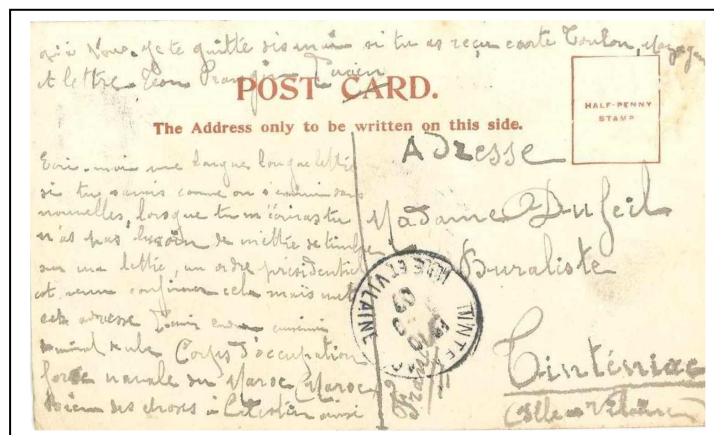 qu'à Vous. Je te quitte dis moi si tu as reçu carte Toulon,
et lettre Lucien
POST CARD.
The Address only to be written on this side.
HALF-PENNY
STAMP
Ecris-moi une longue longue lettre
si tu savais comme on s'ennuie sans
nouvelles, lorsque tu m'écriras tu
n'as pas besoin de mettre de timbre
sur ma lettre, un ordre présidentiel
est venu confirmer cela mais met
cette adresse Lucien
amiral Corps d'occupation
force navale du Maroc (Maroc)
Bien des choses à Célestin ainsi
Adresse
Madame Dufeil
Buraliste
Tinténiac
(Ille et Vilaine)
France
TINTE
ILLE ET VILAINE